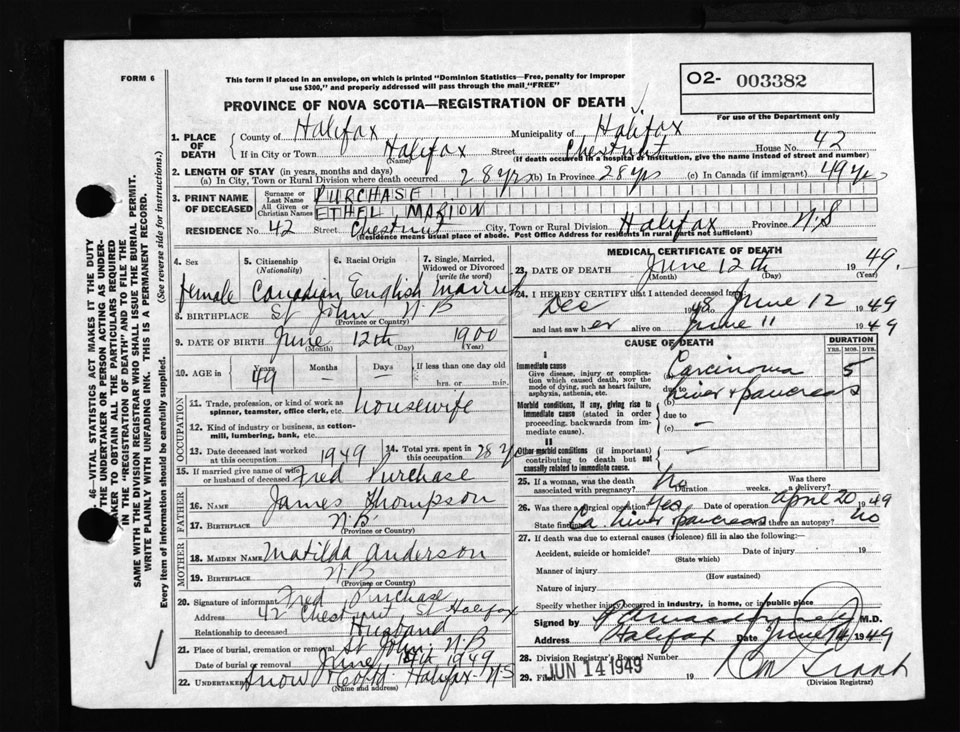 FORM 6
This form if placed in an envelope, on which is printed "Dominion Statistics—Free, penalty for improper
use $300," and properly addressed will pass through the mail "FREE"
O2- 003382
For use of the Department only
PROVINCE OF NOVA SCOTIA—REGISTRATION OF DEATH
1. PLACE OF DEATH
County of Halifax Municipality of Halifax
If in City or Town Halifax Street Chestnut House No. 42
(Name) (If death occurred in a hospital or institution, give the name instead of street and number)
2. LENGTH OF STAY (in years, months and days)
(a) In City, Town or Rural Division where death occurred 28 yrs (b) In Province 28 yrs (c) In Canada (if immigrant) 49 yrs
3. PRINT NAME OF DECEASED
Surname or Last Name PURCHASE
All Given or Christian Names ETHEL, MARION
RESIDENCE No. 42 Street Chestnut City, Town or Rural Division Halifax Province N.S
(Residence means usual place of abode. Post Office Address for residents in rural parts not sufficient)
4. Sex female
5. Citizenship (Nationality) Canadian
6. Racial Origin English
7. Single, Married, Widowed or Divorced (write the word) Married
8. BIRTHPLACE St John N B
(Province or Country)
9. DATE OF BIRTH June 12th 1900
(Month) (Day) (Year)
10. AGE in Years 49 Months — Days — If less than one day old hrs. or min.
OCCUPATION
11. Trade, profession, or kind of work as spinner, teamster, office clerk, etc. housewife
12. Kind of industry or business, as cotton-mill, lumbering, bank, etc.
13. Date deceased last worked at this occupation 1949
14. Total yrs. spent in this occupation 28 yrs
15. If married give name of wife or husband of deceased Fred Purchase
FATHER
16. Name James Thompson
17. Birthplace N.B
(Province or Country)
MOTHER
18. Maiden Name Matilda Anderson
19. Birthplace N.B
(Province or Country)
20. Signature of informant Fred Purchase
Address 42 Chestnut St Halifax
Relationship to deceased Husband
21. Place of burial, cremation or removal St John, N.B
Date of burial or removal June 1949
22. Undertaker Snow & Co Ltd. Halifax N.S
(Name and address)
MEDICAL CERTIFICATE OF DEATH
23. DATE OF DEATH June 12th 1949
(Month) (Day) (Year)
24. I HEREBY CERTIFY that I attended deceased from
Dec 1948 to June 12 1949
and last saw her alive on June 11 1949
CAUSE OF DEATH
DURATION
YRS. MOS. DYS.
I
Immediate cause
Give disease, injury or complication which caused death, not the mode of dying, such as heart failure, asphyxia, asthenia, etc.
(a) Carcinoma 5
due to
Liver & Pancreas
Morbid conditions, if any, giving rise to immediate cause (stated in order proceeding backwards from immediate cause).
(b)
due to
(c) —
II
Other morbid conditions (if important) contributing to death but not causally related to immediate cause.
25. If a woman, was the death associated with pregnancy? No Duration weeks. Was there a delivery?
26. Was there a surgical operation? Yes Date of operation April 20 1949
State findings Ca. Liver & Pancreas Was there an autopsy? No
27. If death was due to external causes (violence) fill in also the following:
Accident, suicide or homicide? Date of injury 19
(State which)
Manner of injury
(How sustained)
Nature of injury
Specify whether injury occurred in industry, in home, or in public place
Signed by M.D.
Address Halifax Date June 14 1949
28. Division Registrar's Record Number
29. Filed JUN 14 1949 19
(Division Registrar)
46—VITAL STATISTICS ACT MAKES IT THE DUTY
THE UNDERTAKER OR PERSON ACTING AS UNDER-
TAKER TO OBTAIN ALL THE PARTICULARS REQUIRED
IN THE "REGISTRATION OF DEATH" AND TO FILE THE
SAME WITH THE DIVISION REGISTRAR WHO SHALL ISSUE THE BURIAL PERMIT.
WRITE PLAINLY WITH UNFADING INK. THIS IS A PERMANENT RECORD.
Every item of information should be carefully supplied. (See reverse side for instructions.)